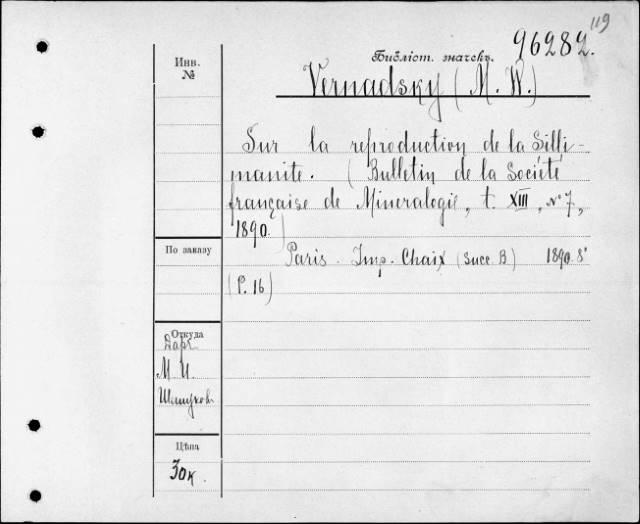 119
96282.
Библіот. значекъ.
Инв.
№
Vernadsky (M. W.)
Sur la reproduction de la Silli-
manite. (Bulletin de la Société
française de Mineralogie, t. XIII, № 7,
1890.)
По заказу
Paris. Imp. Chaix (Succ. B) 1890. 8°
(P. 16)
Откуда
Даръ
М. И.
Цѣна
30к.